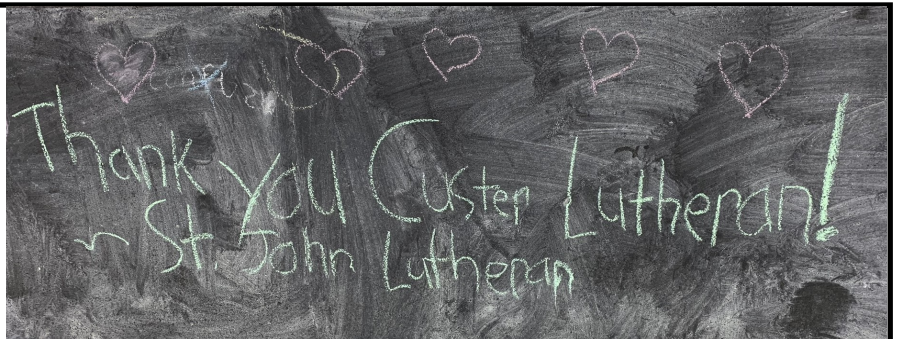 Thank you Custer Lutheran!
~ St. John Lutheran